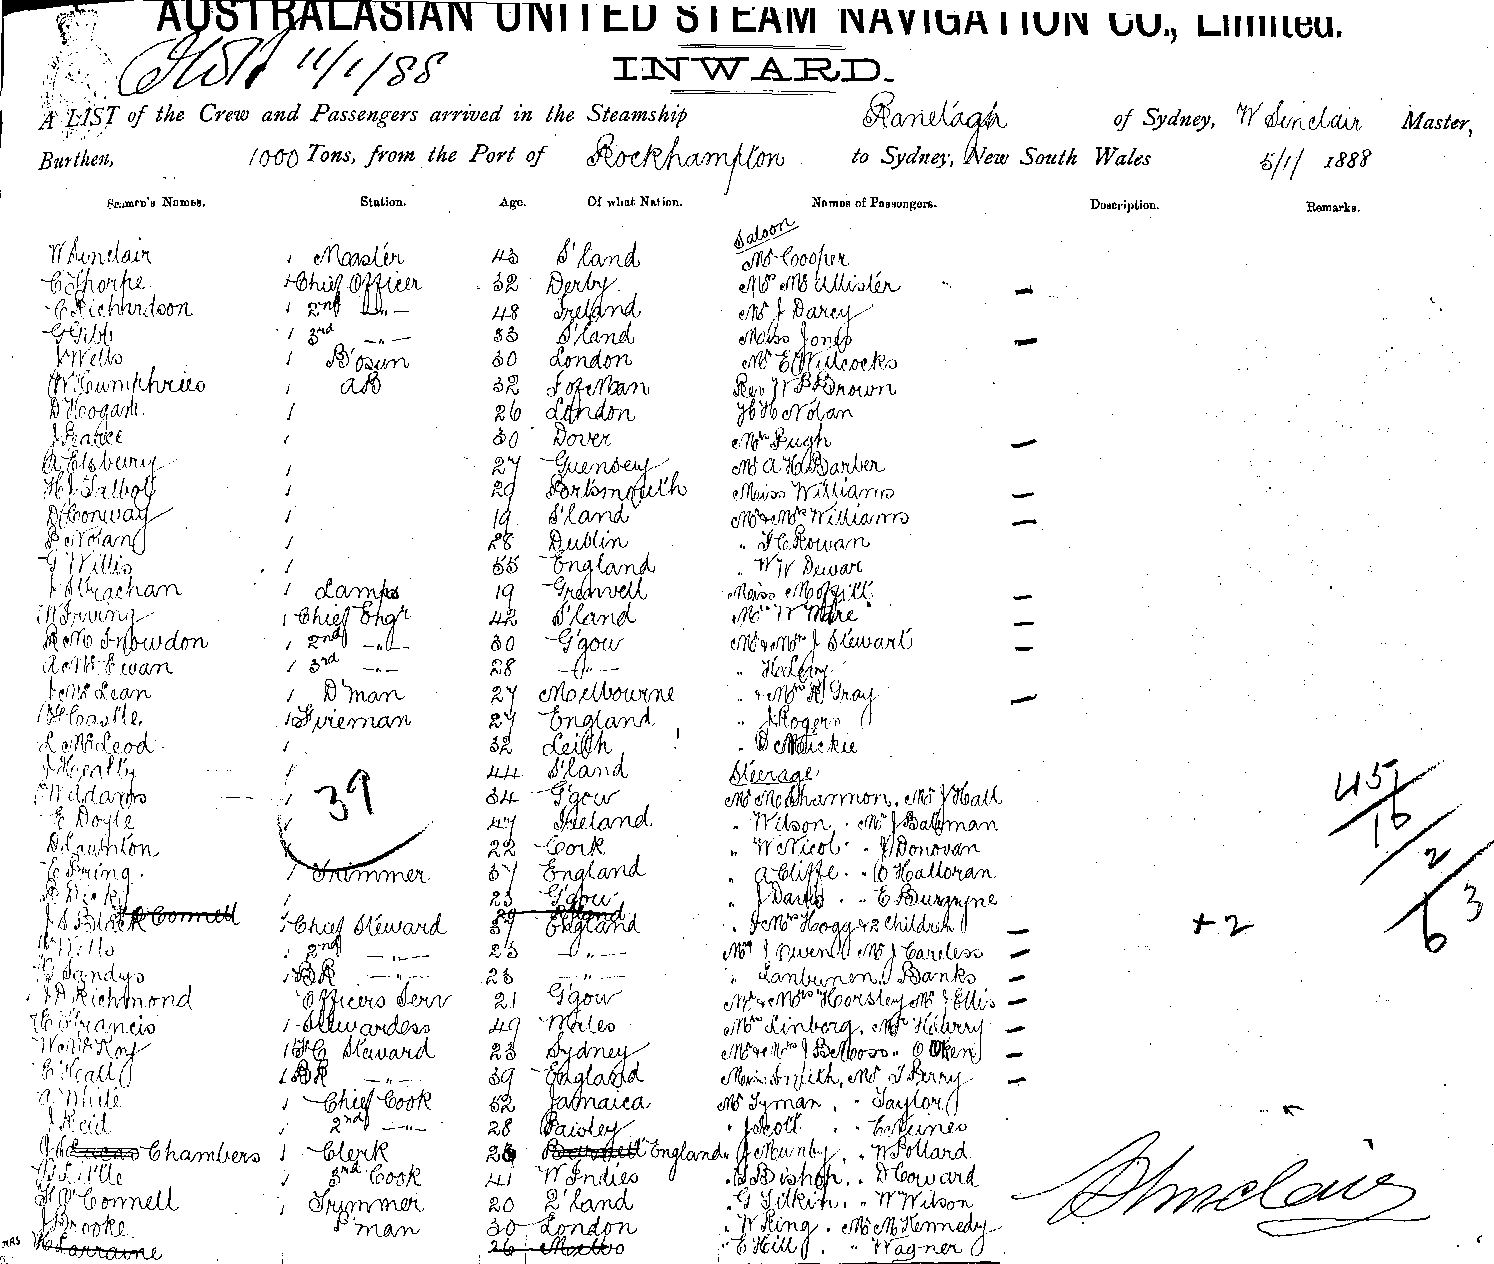 AUSTRALASIAN UNITED STEAM NAVIGATION CO., Limited.
11/1/88
INWARD.
A LIST of the Crew and Passengers arrived in the Steamship Ranelagh of Sydney, W Sinclair Master,
Burthen, 1000 Tons, from the Port of Rockhampton to Sydney, New South Wales 5/1/ 1888
Seamen's Names. Station. Age. Of what Nation. Names of Passengers. Description. Remarks.
Saloon
W Sinclair 1 Master 43 S'land Mr Cooper
C Thorpe 1 Chief Officer 32 Derby Mrs McAllister —
C Richardson 1 2nd —"— 48 Ireland Mr J Darcy
G Gibb 1 3rd —"— 33 S'land Miss Jones —
J Wells 1 B'osun 30 London Mr E Willcocks
W Humphries 1 AB 32 I of Man Rev W Brown
D Hogan 1 26 London H H Nolan
J 1 30 Dover Mrs Pugh —
A Elsbury 1 27 Guensey Mr A H Barber
H J Talbot 1 29 Portsmouth Miss Williams —
D Conway 1 19 S'land Mr & Mrs Williams —
P Nolan 1 28 Dublin " F C Rowan
G Willis 1 55 England " W W Dewar
J Strachan 1 Lamps 19 Miss —
W Irving 1 Chief Engr 42 S'land Mrs W —
R M Snowdon 1 2nd —"— 30 G'gow Mr & Mrs J Stewart —
A McEwan 1 3rd —"— 28 —"— " H Levy
J McLean 1 D'man 27 Melbourne " & Mrs R Gray —
H Castle 1 Fireman 27 England " J Rogers
L McLeod 1 32 Leith " D Mickie
J Healy 1 44 S'land Steerage
W Adams 1 34 G'gow Mr McShannon, Mr J Hall
39
45/16/2/63
E Doyle 1 47 Ireland " Wilson, " Mr J Bateman
D Launton 1 22 Cork " W Nicol " J Donovan
E Pring 1 Trimmer 37 England " A Cliffe " O Halloran
23 G'gow " J Davis " E Burgoyne
O'Connell 29
J S Black 1 Chief Steward 37 England " & Mrs Hogg & 2 Children — +2
W Wills 1 2nd —"— 23 —"— Mrs J Owen, Mr J Careless —
G Sandys 1 BR —"— 23 —"— " Banks —
J A Richmond Officers Serv 21 G'gow Mr & Mrs Horsley, Mr J Ellis —
C Francis 1 Stewardess 49 Wales Mrs Linborg, Mr Harry —
W McKoy 1 F.C. Steward 23 Sydney Mr & Mrs J —
C Heall 1 BR —"— 39 England Miss Smith, Mr J Berry —
A White 1 Chief Cook 52 Jamaica Mr Tyman, " Taylor
J Reid 1 2nd —"— 28 Paisley " J Scott " E Tunes
J Chambers 1 Clerk 26 England " J Munby, " W Pollard
G Little 1 3rd Cook 41 W Indies " J Bishop, " D Coward
H O'Connell 1 Trimmer 20 Q'land " G Silkin, " W Wilson
J Brooke F'man 30 London " W King, Mr M Kennedy
Mrs Lorraine 26 " E Hill, " Wagner
W Sinclair